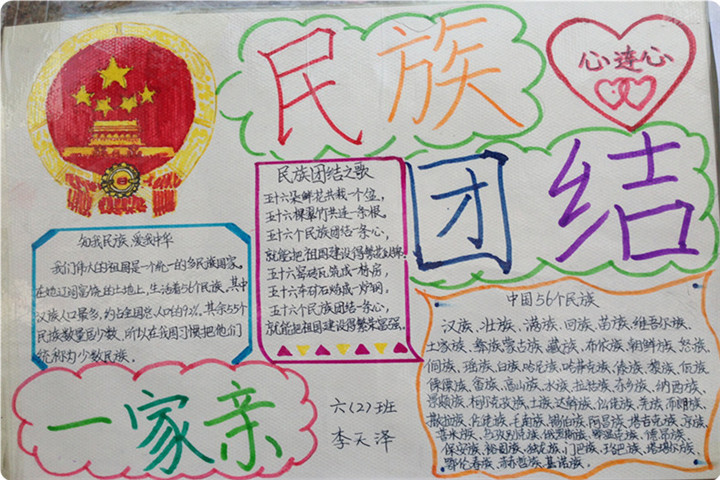 民族
心连心
团结
民族团结之歌
五十六朵鲜花共栽一个盆,
五十六棵翠竹共连一条根,
五十六个民族团结一条心,
就能把祖国建设得繁荣
五十六窑砖瓦筑成一栋房,
五十六车矿石炼成一炉钢,
五十六个民族团结一条心,
就能把祖国建设得繁荣富强。
各我民族、爱我中华
我们伟大的祖国是一个统一的多民族国家。
在她辽阔富饶的土地上,生活着56个民族,其中
汉族人口最多,约占全国总人口的92%,其余55个
民族数量居少数,所以在我国习惯把他们
统称为少数民族。
中国56个民族
汉族、壮族、满族、回族、苗族、维吾尔族、
土家族、彝族蒙古族、藏族、布依族、朝鲜族、怒族、
侗族、瑶族、白族、哈尼族、哈萨克族、傣族、黎族、佤族
傈僳族、畲族、高山族、水族、拉祜族、东乡族、纳西族、
景颇族、柯尔克孜族、土族、达斡尔族、仫佬族、羌族、布朗族、
撒拉族、仡佬族、毛南族、锡伯族、阿昌族、塔吉克族、苏族、
普米族、乌孜别克族、俄罗斯族、鄂温克族、德昂族、
保安族、裕固族、独龙族、门巴族、珞巴族、塔塔尔族、
鄂伦春族、赫哲族、基诺族。
一家亲
六(2)班
李天泽